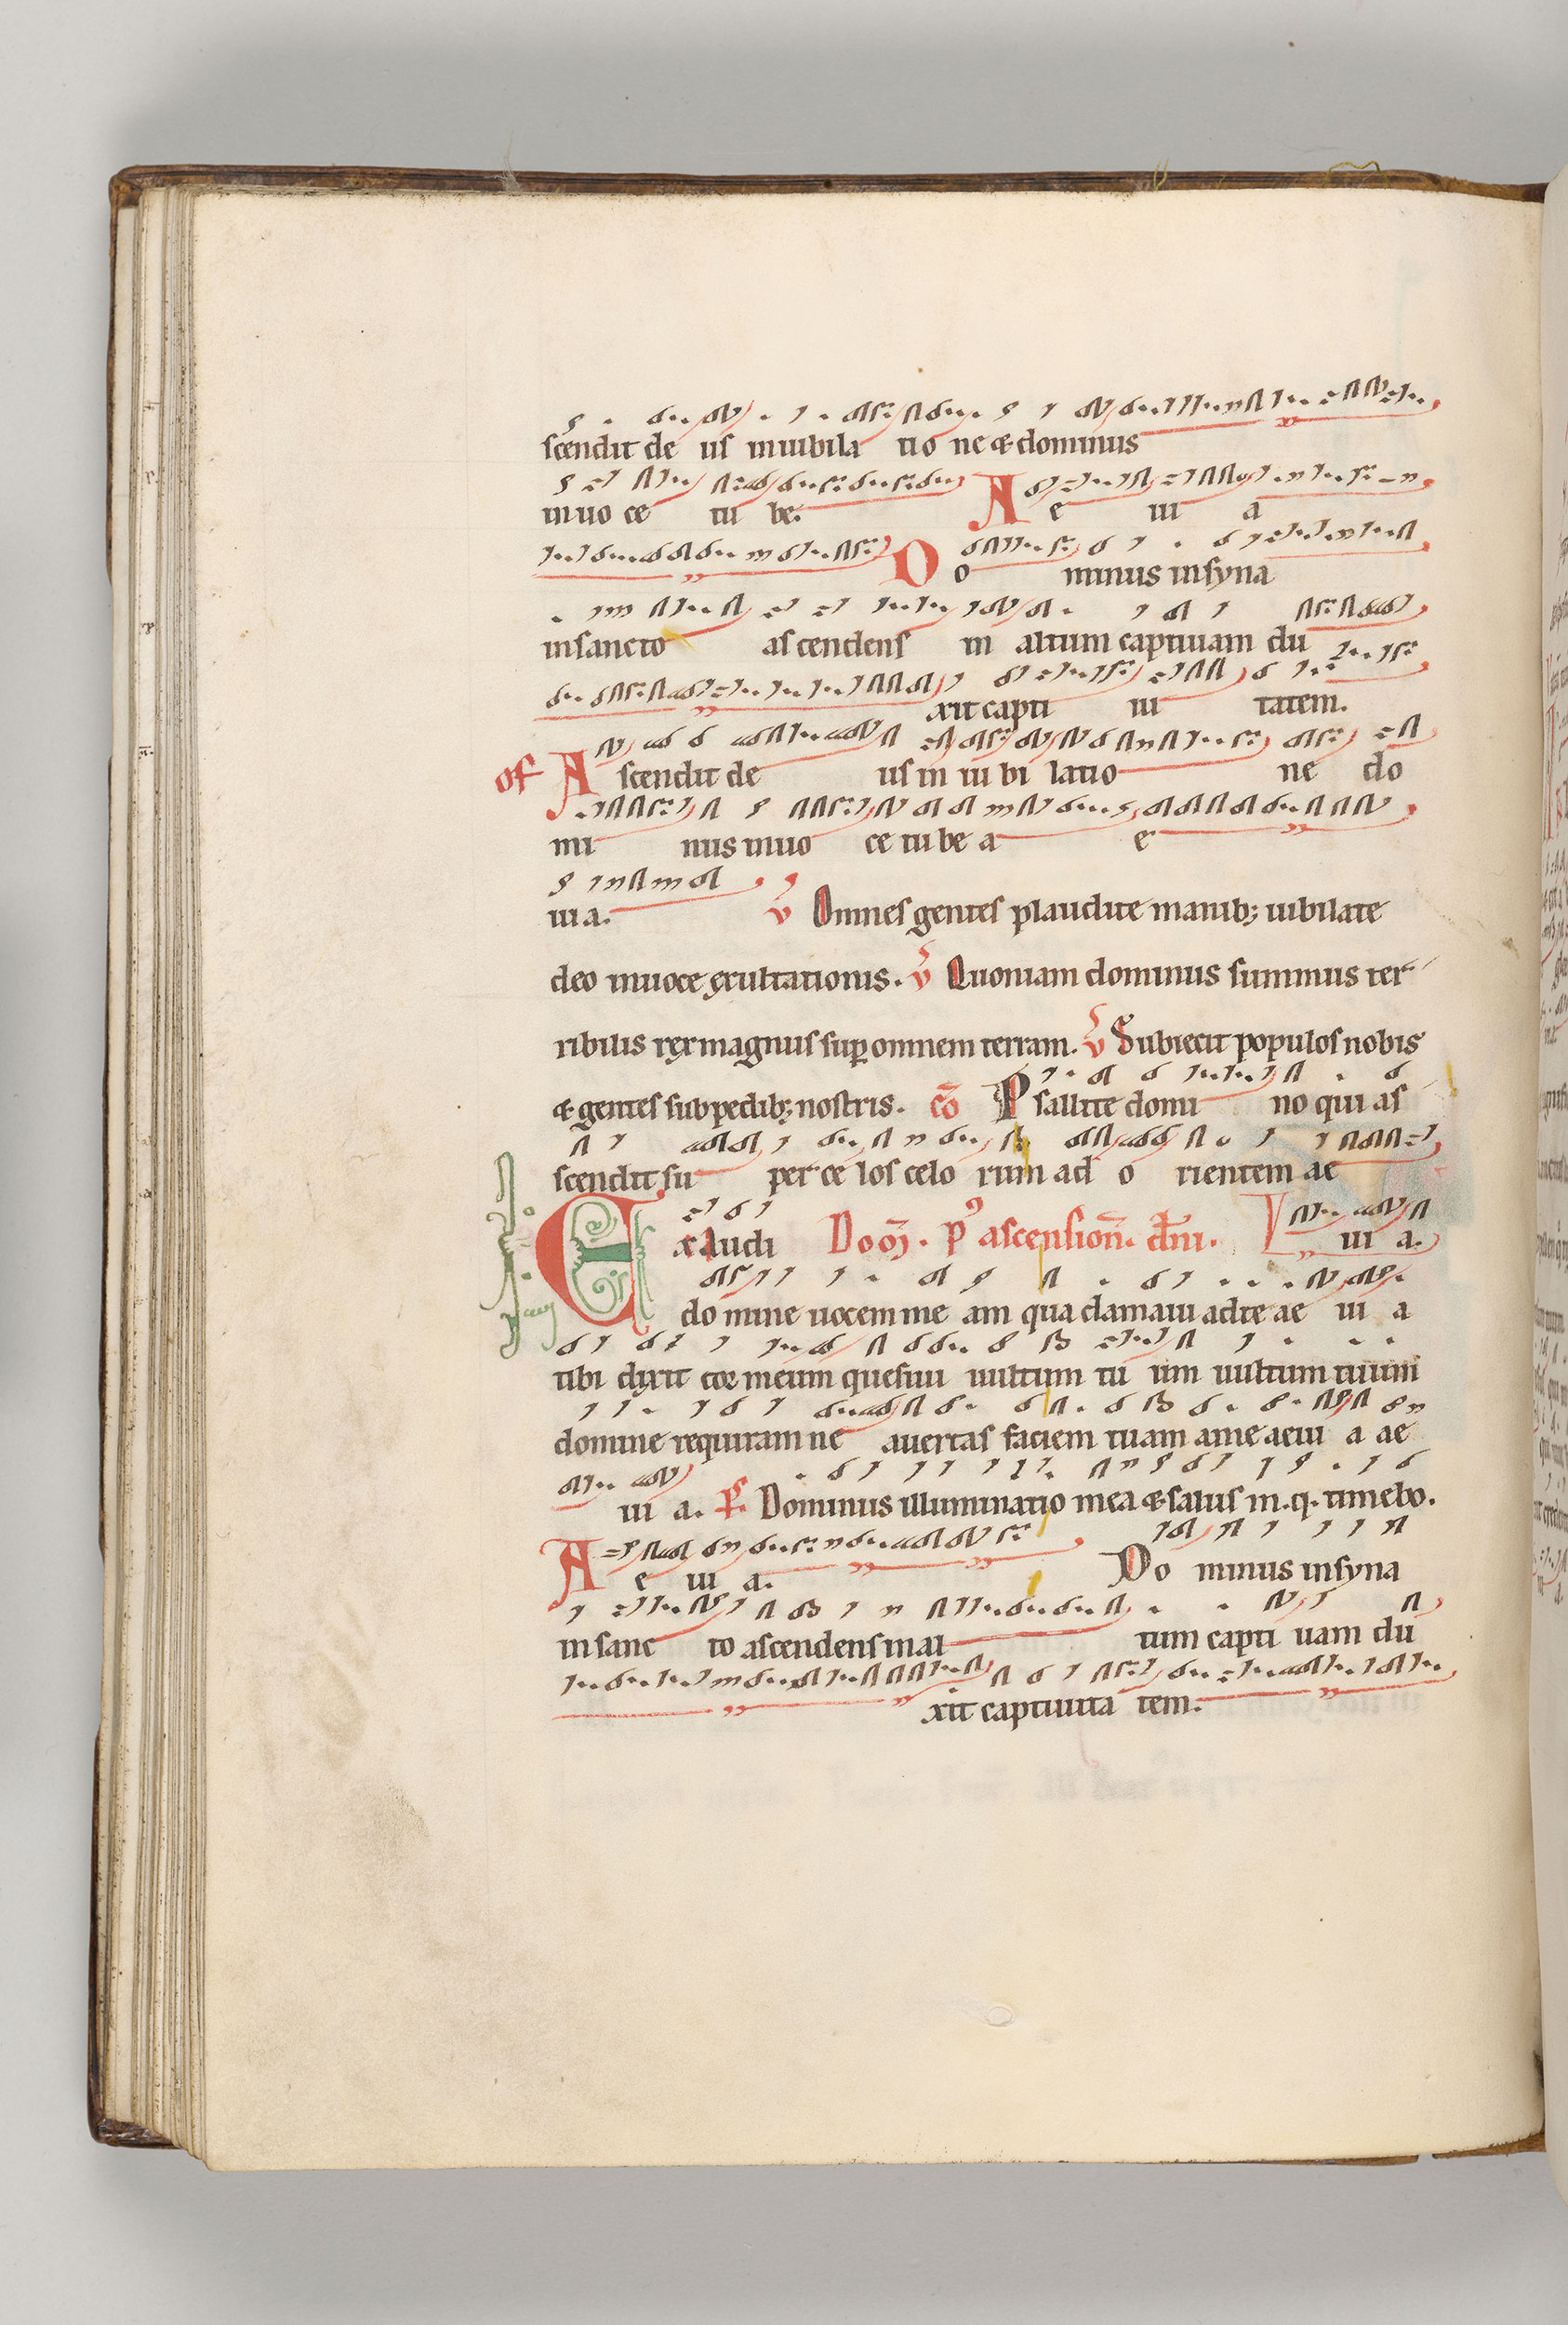 scendit de us in iubila tio ne & dominus
in uo ce tu be. A e ui a
Do minus in syna
in sancto as cendens in altum captiuam du
xit capti ui tatem.
of A scendit de us in iu bi latio ne do
mi nus in uo ce tu be a e
ui a. v Omnes gentes plaudite manib; iubilate
deo in uoce exultationis. v Quoniam dominus summus ter
ribilis rex magnus sup omnem terram. v Subiecit populos nobis
& gentes sub pedib; nostris. cō Psallite domi no qui as
scendit su per ce los celo rum ad o rientem ae
Exaudi Dom̄. p' ascension̄. dn̄i. ui a.
do mine uocem me am qua clamaui ad te ae ui a
tibi dixit cor meum quesiui uultum tu um uultum tuum
domine requiram ne auertas faciem tuam a me aeui a ae
ui a. ps. Dominus illuminatio mea & salus m. q. timebo.
A e ui a. Do minus in syna
in sanc to ascendens in al tum capti uam du
xit captiuita tem.